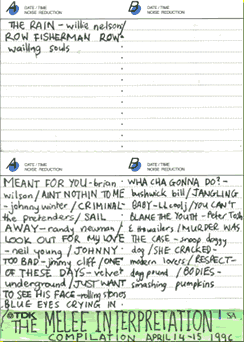 A DATE / TIME
NOISE REDUCTION
B DATE / TIME
NOISE REDUCTION
THE RAIN - willie nelson/
ROW FISHERMAN ROW-
wailing souls
A DATE / TIME
NOISE REDUCTION
B DATE / TIME
NOISE REDUCTION
MEANT FOR YOU - brian
wilson / AINT NOTHIN TO ME
- johnny winter / CRIMINAL -
the pretenders / SAIL
AWAY - randy newman /
LOOK OUT FOR MY LOVE
- neil young / JOHNNY
TOO BAD - jimmy cliff / ONE
OF THESE DAYS - velvet
underground / JUST WANT
TO SEE HIS FACE - rolling stones
BLUE EYES CRYING IN
WHA CHA GONNA DO? -
bushwick bill / JANGLING
BABY - LL cool j / YOU CAN'T
BLAME THE YOUTH - Peter Tosh
& wailers / MURDER WAS
THE CASE - snoop doggy
dog / SHE CRACKED -
modern lovers / RESPECT -
dogg pound / BODIES -
smashing pumpkins
TDK
THE MELEE INTERPRETATION
SA
COMPILATION APRIL 14-15 1996